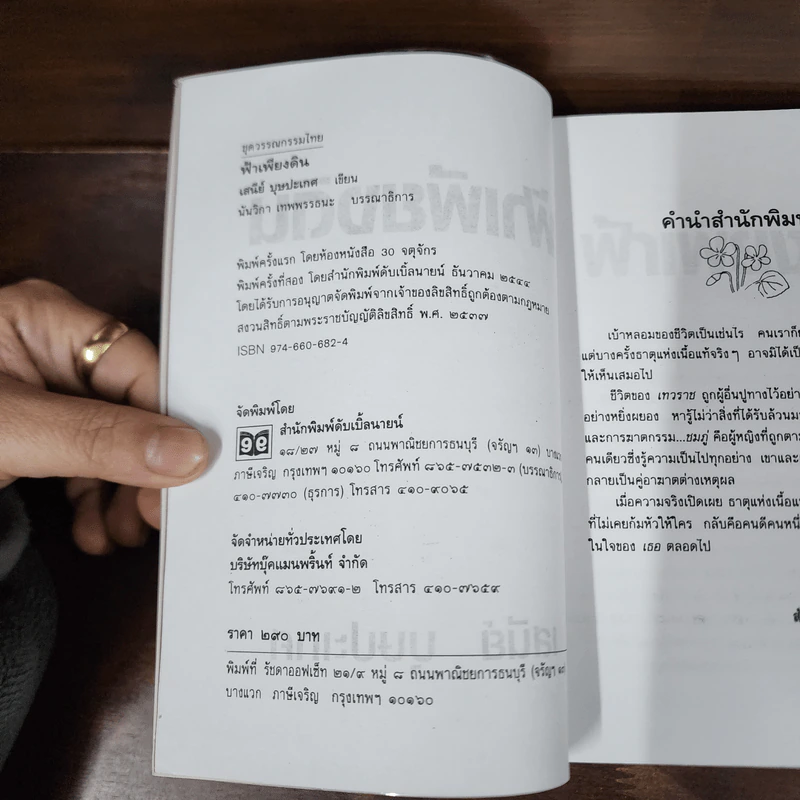 ชุดวรรณกรรมไทย
ฟ้าเพียงดิน
เสนีย์ บุษปะเกศ เขียน
นันวิกา เทพพรรธนะ บรรณาธิการ
พิมพ์ครั้งแรก โดยห้องหนังสือ 30 จตุจักร
พิมพ์ครั้งที่สอง โดยสำนักพิมพ์ดับเบิ้ลนายน์ ธันวาคม ๒๕๔๔
โดยได้รับการอนุญาตจัดพิมพ์จากเจ้าของลิขสิทธิ์ถูกต้องตามกฎหมาย
สงวนสิทธิ์ตามพระราชบัญญัติลิขสิทธิ์ พ.ศ. ๒๕๓๗
ISBN 974-660-682-4
จัดพิมพ์โดย
สำนักพิมพ์ดับเบิ้ลนายน์
๑๘/๒๗ หมู่ ๘ ถนนพาณิชยการธนบุรี (จรัญฯ ๑๓)
ภาษีเจริญ กรุงเทพฯ ๑๐๑๖๐ โทรศัพท์ ๘๖๕-๗๕๓๒-๓ (บรรณาธิการ)
๔๑๐-๗๗๓๐ (ธุรการ) โทรสาร ๔๑๐-๙๐๖๕
จัดจำหน่ายทั่วประเทศโดย
บริษัทบุ๊คแมนพริ้นท์ จำกัด
โทรศัพท์ ๘๖๕-๗๖๙๑-๒ โทรสาร ๔๑๐-๗๖๕๙
ราคา ๒๙๐ บาท
พิมพ์ที่ รัชดาออฟเซ็ท ๒๑/๙ หมู่ ๘ ถนนพาณิชยการธนบุรี (จรัญฯ ๑๓
บางแวก ภาษีเจริญ กรุงเทพฯ ๑๐๑๖๐
คำนำสำนักพิม
เบ้าหลอมของชีวิตเป็นเช่นไร คนเราก็
แต่บางครั้งธาตุแห่งเนื้อแท้จริงๆ อาจมิได้เป็
ให้เห็นเสมอไป
ชีวิตของ เทวราช ถูกผู้อื่นปูทางไว้อย่า
อย่างหยิ่งผยอง หารู้ไม่ว่าสิ่งที่ได้รับล้วนม
และการฆาตกรรม...ชมภู่ คือผู้หญิงที่ถูกตา
คนเดียวซึ่งรู้ความเป็นไปทุกอย่าง เขาและเ
กลายเป็นคู่อาฆาตต่างเหตุผล
เมื่อความจริงเปิดเผย ธาตุแห่งเนื้อแ
ที่ไม่เคยก้มหัวให้ใคร กลับคือคนดีคนหนึ่
ในใจของ เธอ ตลอดไป